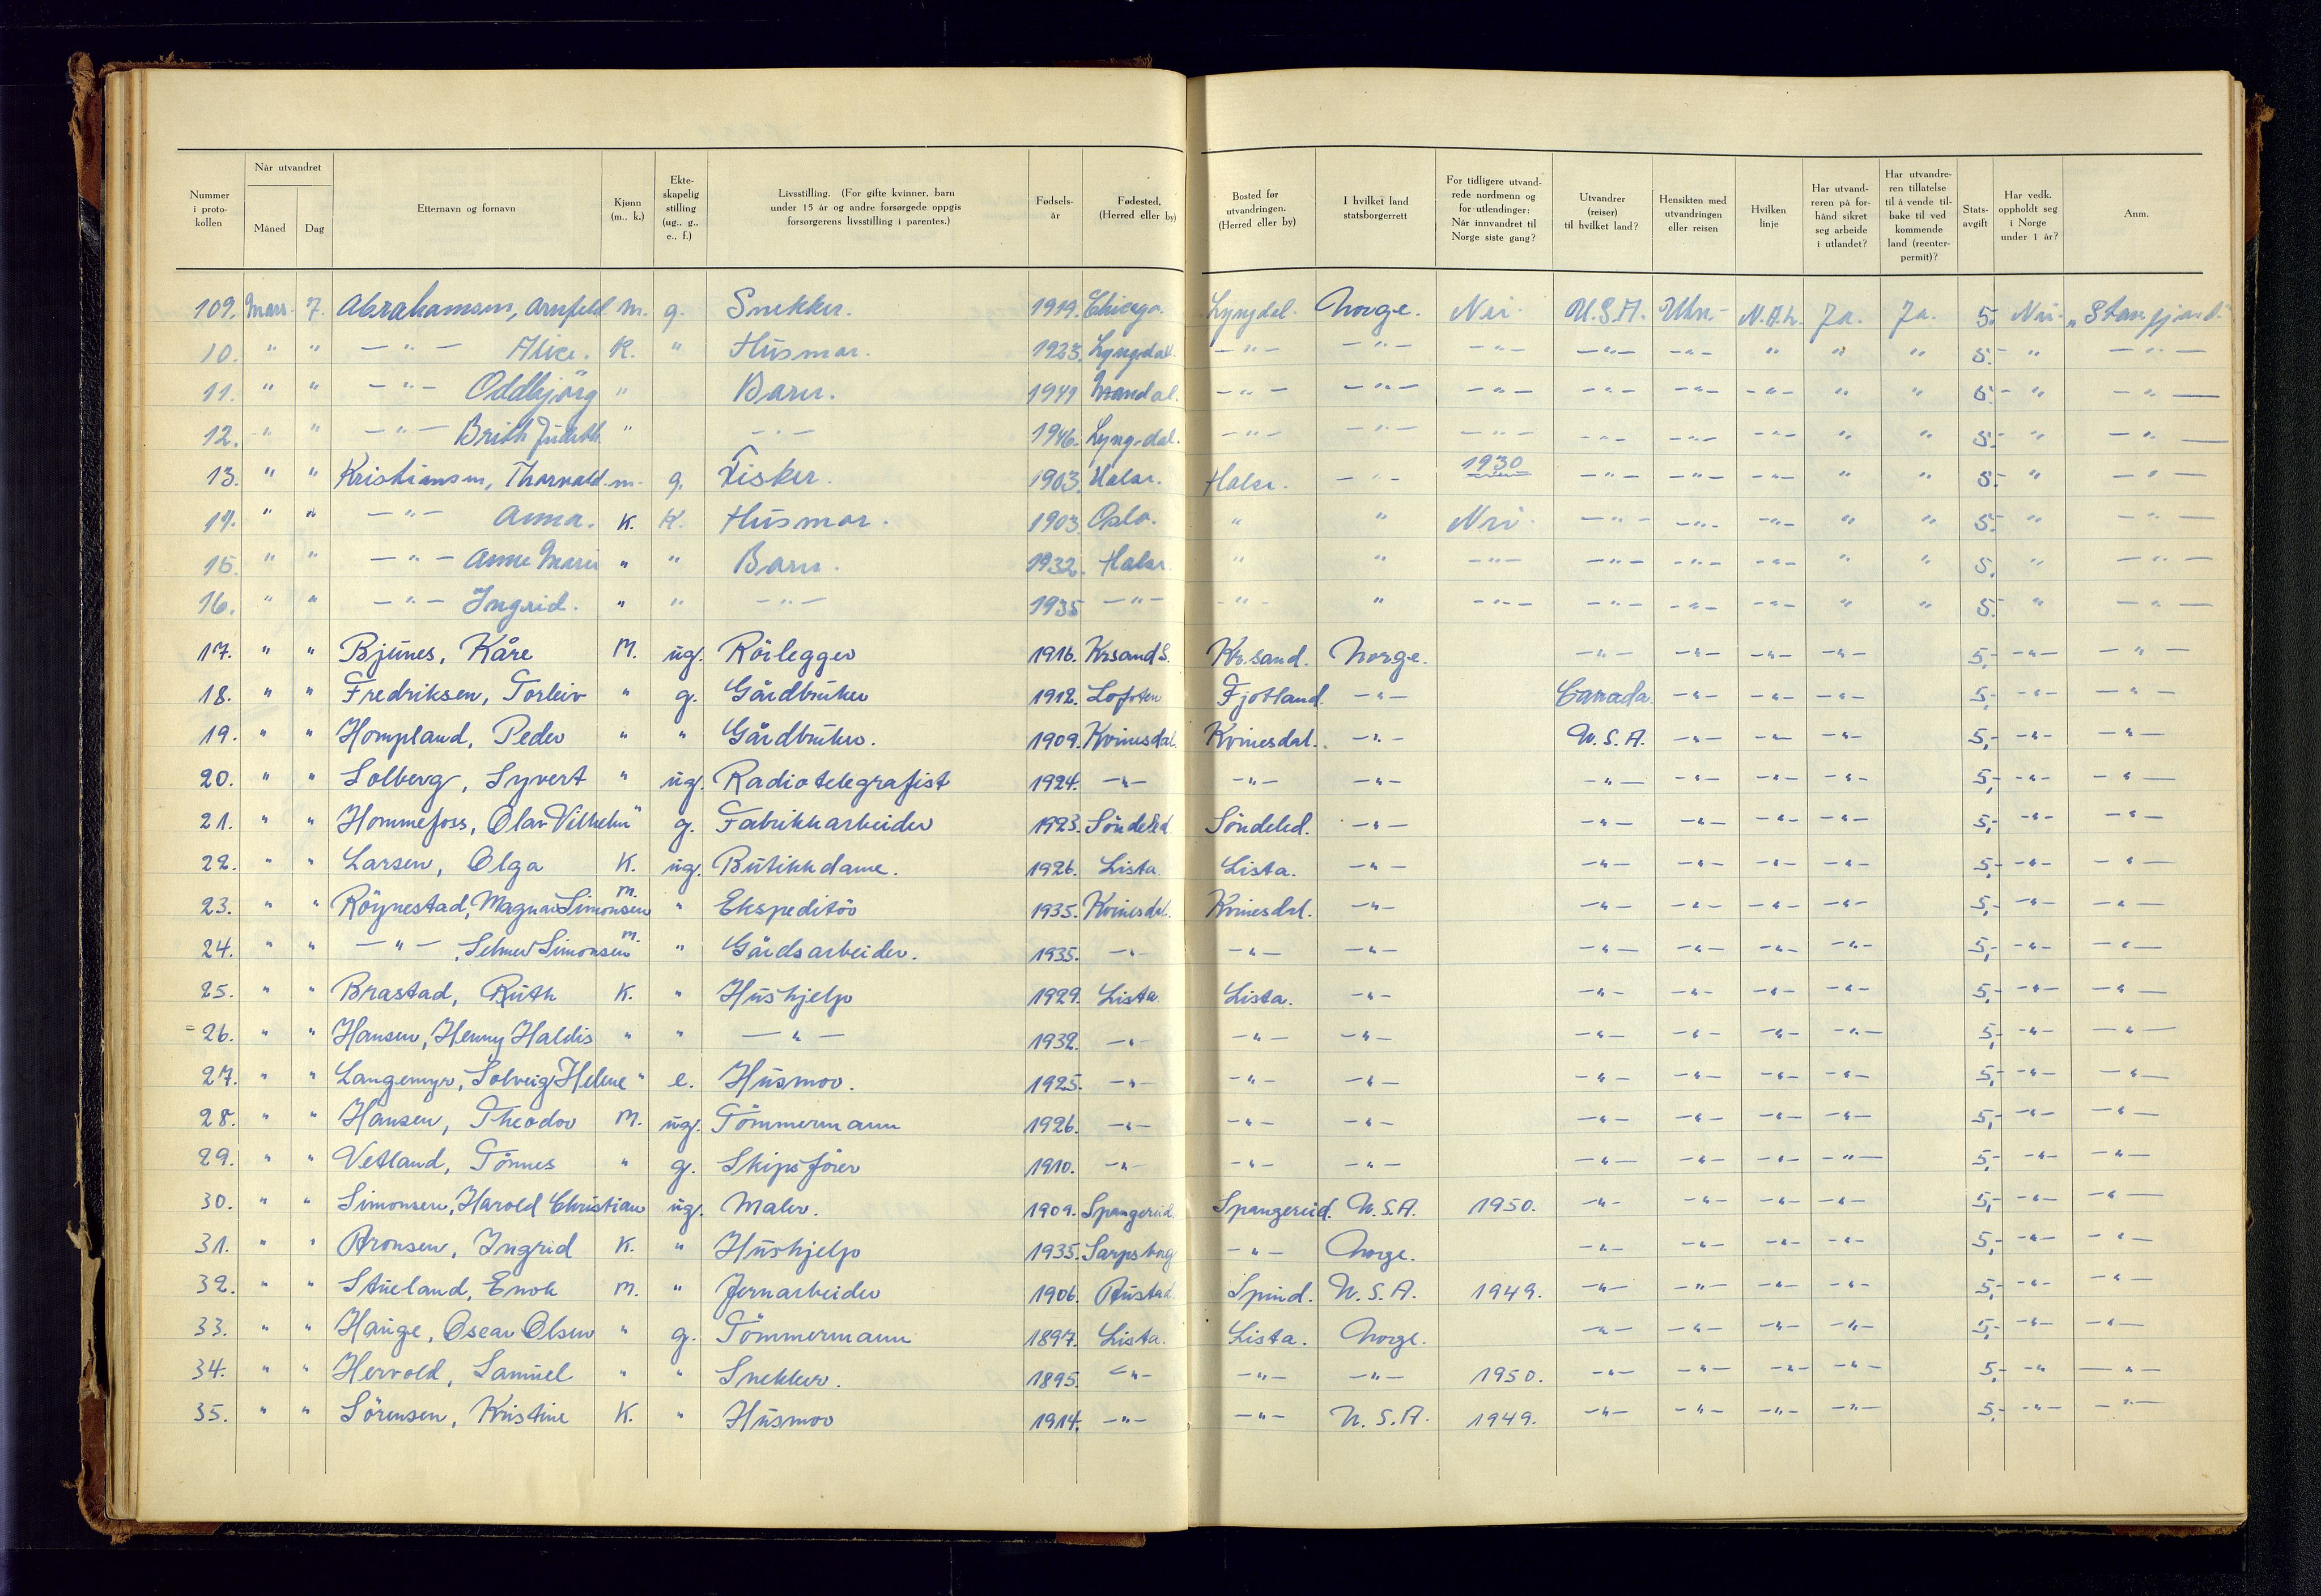 Nummer i proto- kollen | Når utvandret Måned | Dag | Etternavn og fornavn | Kjønn (m., k.) | Ekte- skapelig stilling (ug., g., e., f.) | Livsstilling. (For gifte kvinner, barn under 15 år og andre forsørgede oppgis forsørgerens livsstilling i parentes.) | Fødsels- år | Fødested. (Herred eller by) | Bosted før utvandringen. (Herred eller by) | I hvilket land statsborgerrett | For tidligere utvand- rede nordmenn og for utlendinger: Når innvandret til Norge siste gang? | Utvandrer (reiser) til hvilket land? | Hensikten med utvandringen eller reisen | Hvilken linje | Har utvand- reren på for- hånd sikret seg arbeide i utlandet? | Har utvandre- ren tillatelse til å vende til- bake til ved kommende land (reenter- permit)? | Stats- avgift | Har vedk. oppholdt seg i Norge under 1 år? | Anm.
109. Mars. 7. Abrahamsen, Arnfeld M. g. Snekker. 1919. Chicago. Lyngdal. Norge. Nei. U.S.A. Utv.- N.A.L. Ja. Ja. 5.- Nei. "Stavgjord."
10. " " -"- Alice. K. " Husmor. 1923. Lyngdal. -"- -"- -"- -"- -"- " " " 5.- " -"-
11. " " -"- Oddbjörg " Barn. 1941 Mandal. -"- -"- -"- -"- -"- -"- " " 5.- " -"-
12. " " -"- Brith Judith " -"- 1946. Lyngdal. -"- -"- -"- -"- -"- -"- " " 5.- " -"-
13. " " Kristiansen, Thorvald. m. g. Fisker. 1903. Halse. Halse. -"- 1930 -"- -"- -"- " " 5.- " -"-
14. " " -"- Anna. K. K. Husmor. 1903. Oslo. " " Nei. -"- -"- -"- " " 5.- " -"-
15. " " -"- Anne Marie " " Barn. 1932. Halse. " " -"- -"- -"- -"- " " 5.- " -"-
16. " " -"- Ingrid. " " -"- 1935 -"- -"- " -"- -"- -"- -"- " " 5.- " -"-
17. " " Bjunes, Kåre M. ug. Rörlegger 1916. Krsand S. Kr.sand. Norge. -"- -"- -"- -"- 5,- -"- -"-
18. " " Fredriksen, Torleiv " g. Gårdbruker 1912. Lofoten Fjotland. -"- Canada. -"- -"- -"- 5,- -"- -"-
19. " " Hompland, Peder " " Gårdbruker. 1909. Kvinesdal. Kvinesdal. -"- U.S.A. -"- -"- -"- 5,- -"- -"-
20. " " Solberg, Syvert " ug. Radiotelegrafist 1924. -"- -"- -"- -"- -"- -"- -"- 5,- -"- -"-
21. " " Hommefoss, Olav Vilhelm " g. Fabrikkarbeider 1923. Söndeled Söndeled. -"- -"- -"- -"- -"- 5,- -"- -"-
22. " " Larsen, Olga K. ug. Butikkdame. 1926. Lista. Lista. -"- -"- -"- -"- -"- 5,- -"- -"-
23. " " Röynestad, Magnar Simonsen m. " Ekspeditör 1935. Kvinesdal. Kvinesdal. -"- -"- -"- -"- -"- 5,- -"- -"-
24. " " -"-, Selmer Simonsen m. " Gårdsarbeider. 1935. -"- -"- -"- -"- -"- -"- -"- 5,- -"- -"-
25. " " Brastad, Ruth K. " Hushjelp 1929. Lista. Lista. -"- -"- -"- -"- -"- 5,- -"- -"-
26. " " Hansen, Henny Haldis " " -"- 1932. -"- -"- -"- -"- -"- -"- -"- 5,- -"- -"-
27. " " Langemyr, Solveig Helene " e. Husmor. 1925. -"- -"- -"- -"- -"- -"- -"- 5,- -"- -"-
28. " " Hansen, Theodor M. ug. Tömmermann 1926. -"- -"- -"- -"- -"- -"- -"- 5,- -"- -"-
29. " " Vetland, Tönnes " g. Skipsförer 1910. -"- -"- -"- -"- -"- -"- -"- 5,- -"- -"-
30. " " Simonsen, Harold Christian ug. Maler. 1909. Spangereid. Spangereid. U.S.A. 1950. -"- -"- -"- -"- 5,- -"- -"-
31. " " Aronsen, Ingrid K. " Hushjelp 1935. Sarpsborg -"- Norge. -"- -"- -"- -"- 5,- -"- -"-
32. " " Stueland, Enok M. " Jernarbeider 1906. Austad. Spind. U.S.A. 1949. -"- -"- -"- -"- 5,- -"- -"-
33. " " Hauge, Oscar Olsen " g. Tömmermann 1897. Lista. Lista. Norge. -"- -"- -"- -"- 5,- -"- -"-
34. " " Hervold, Samuel " " Snekker. 1895. -"- -"- -"- 1950. -"- -"- -"- -"- 5,- -"- -"-
35. " " Sörensen, Kristine K. " Husmor 1914. -"- -"- U.S.A. 1949. -"- -"- -"- -"- 5,- -"- -"-